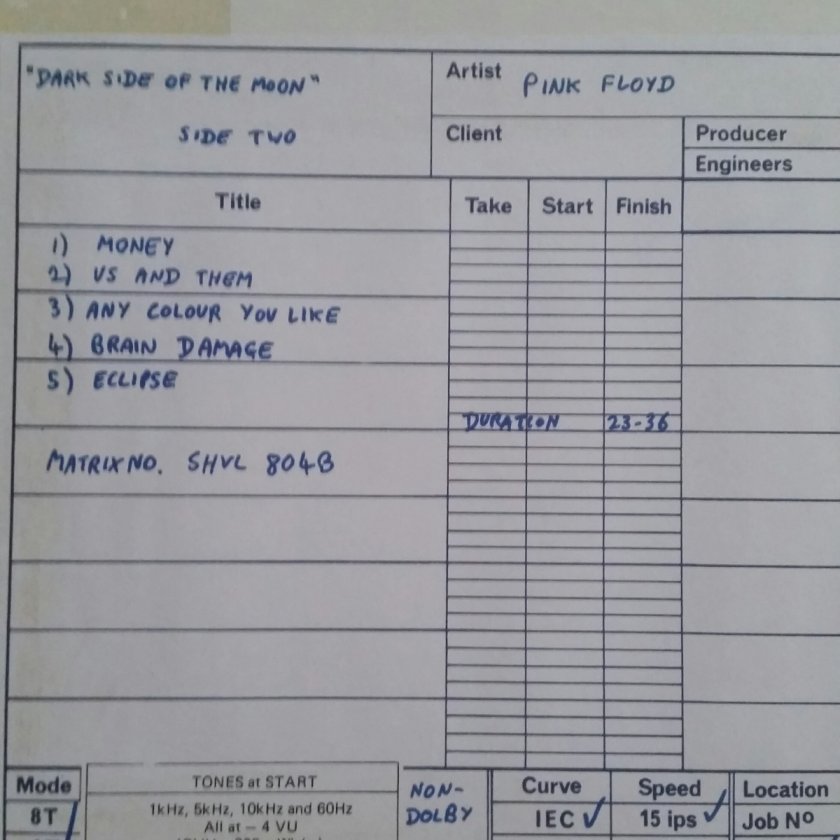 "DARK SIDE OF THE MOON"
SIDE TWO
Artist PINK FLOYD
Client
Producer
Engineers
Title Take Start Finish
1) MONEY
2) US AND THEM
3) ANY COLOUR YOU LIKE
4) BRAIN DAMAGE
5) ECLIPSE
DURATION 23-36
MATRIX NO. SHVL 804B
Mode
8T
TONES at START
1kHz, 5kHz, 10kHz and 60Hz
All at – 4 VU
NON-
DOLBY
Curve
IEC ✓
Speed
15 ips ✓
Location
Job Nº